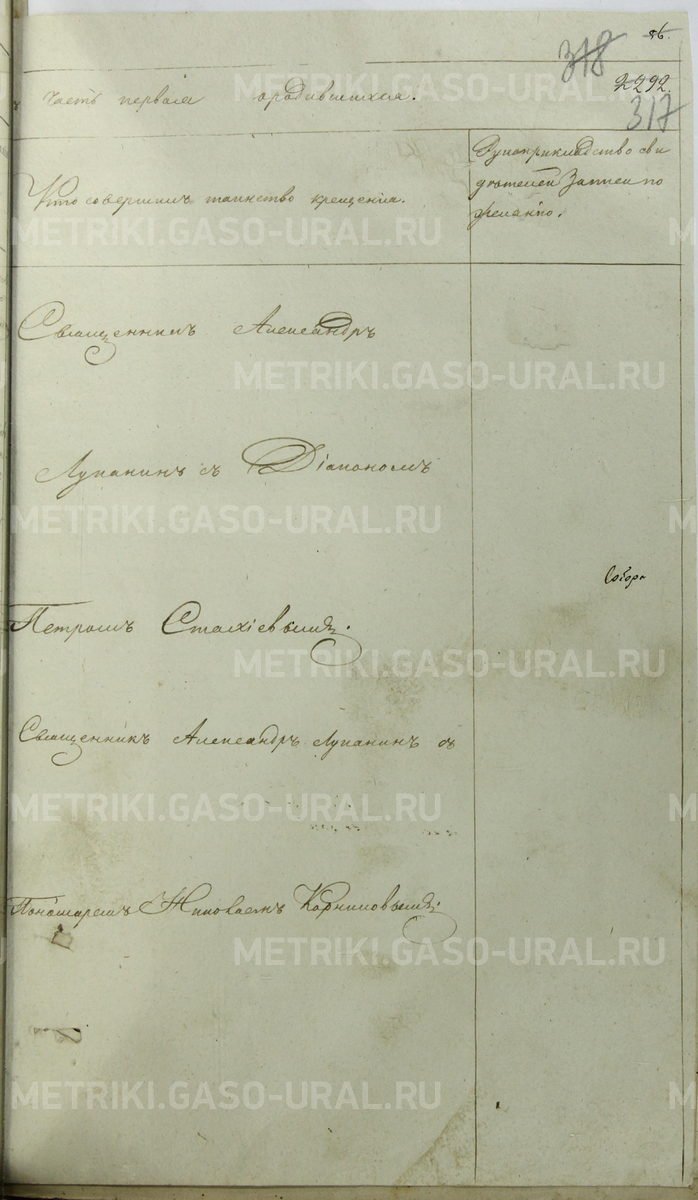 56.
318
2292.
317
часть первая о родившихся.
Кто совершилъ таинство крещенія.
Рукоприкладство сви
дѣтелей Записи по
желанію.
Священникъ Александръ
Лупанинъ съ Діакономъ
Собор
Петромъ
Священникъ Александръ Лупанинъ съ
Пономаремъ Николаемъ
METRIKI.GASO-URAL.RU